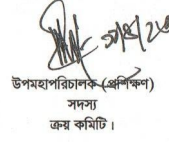 উপমহাপরিচালক (প্রশিক্ষণ)
সদস্য
ক্রয় কমিটি।